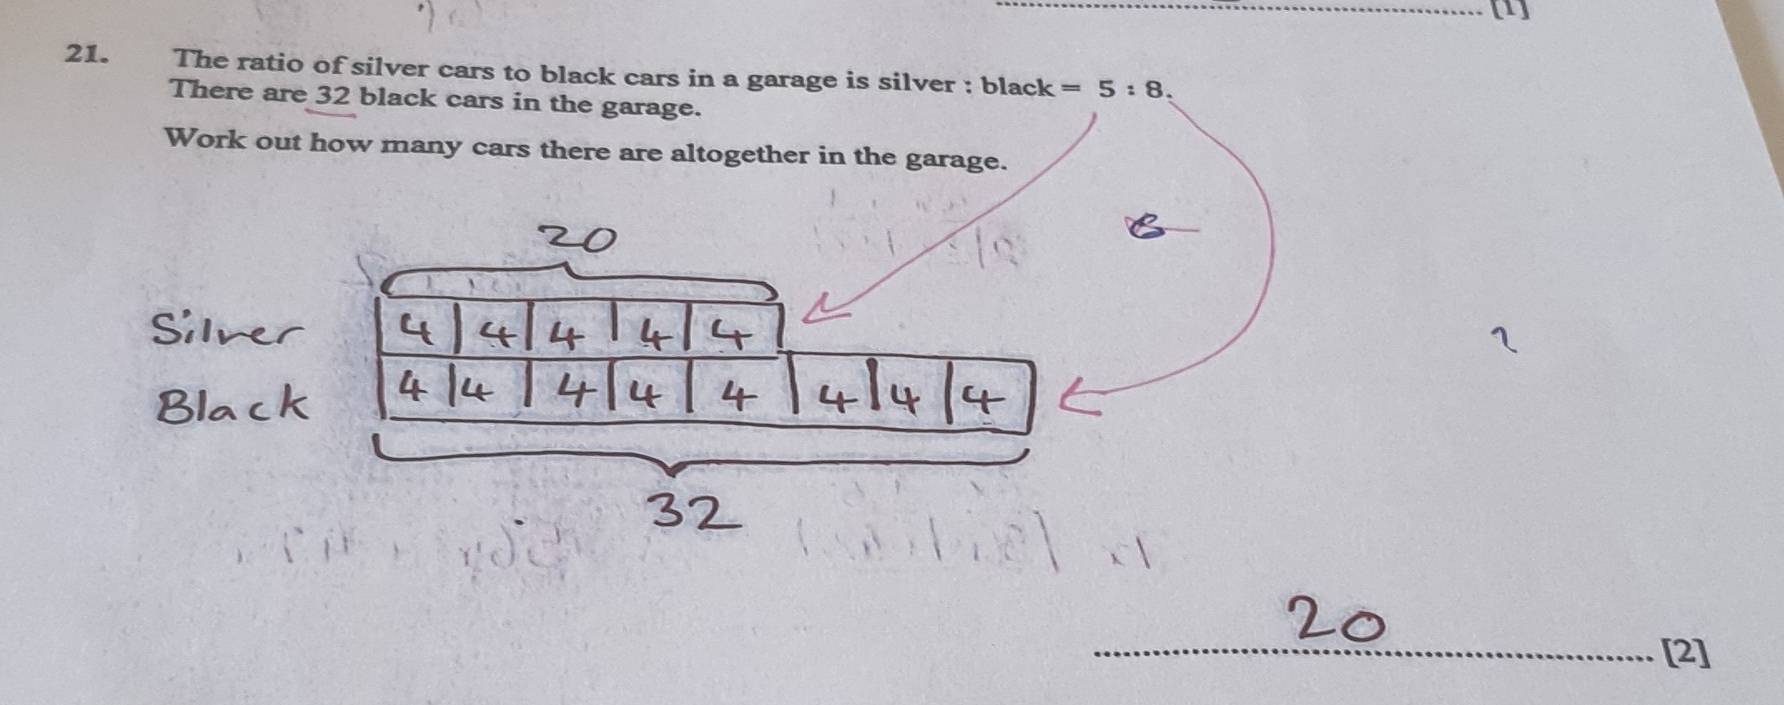 [1]
21. The ratio of silver cars to black cars in a garage is silver : black = 5 : 8.
There are 32 black cars in the garage.
Work out how many cars there are altogether in the garage.
20
Silver 4 4 4 4 4
Black 4 4 4 4 4 4 4 4
32
20
[2]